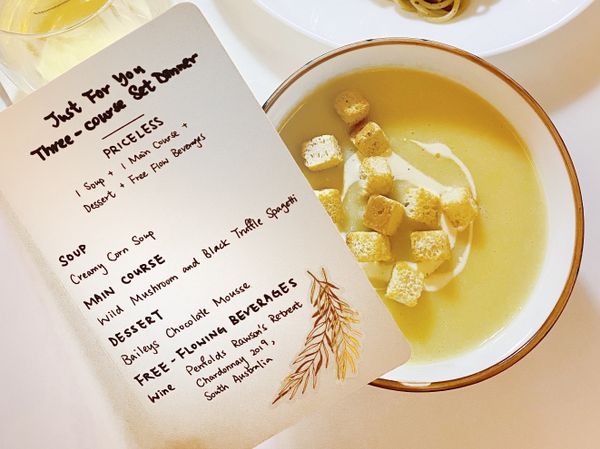 Just For You
Three-course Set Dinner
PRICELESS
1 Soup + 1 Main Course +
Dessert + Free Flow Beverages
SOUP
Creamy Corn Soup
MAIN COURSE
Wild Mushroom and Black Truffle Spagetti
DESSERT
Baileys Chocolate Mousse
FREE-FLOWING BEVERAGES
Wine Penfolds Rawson's Retreat
Chardonnay 2019,
South Australia